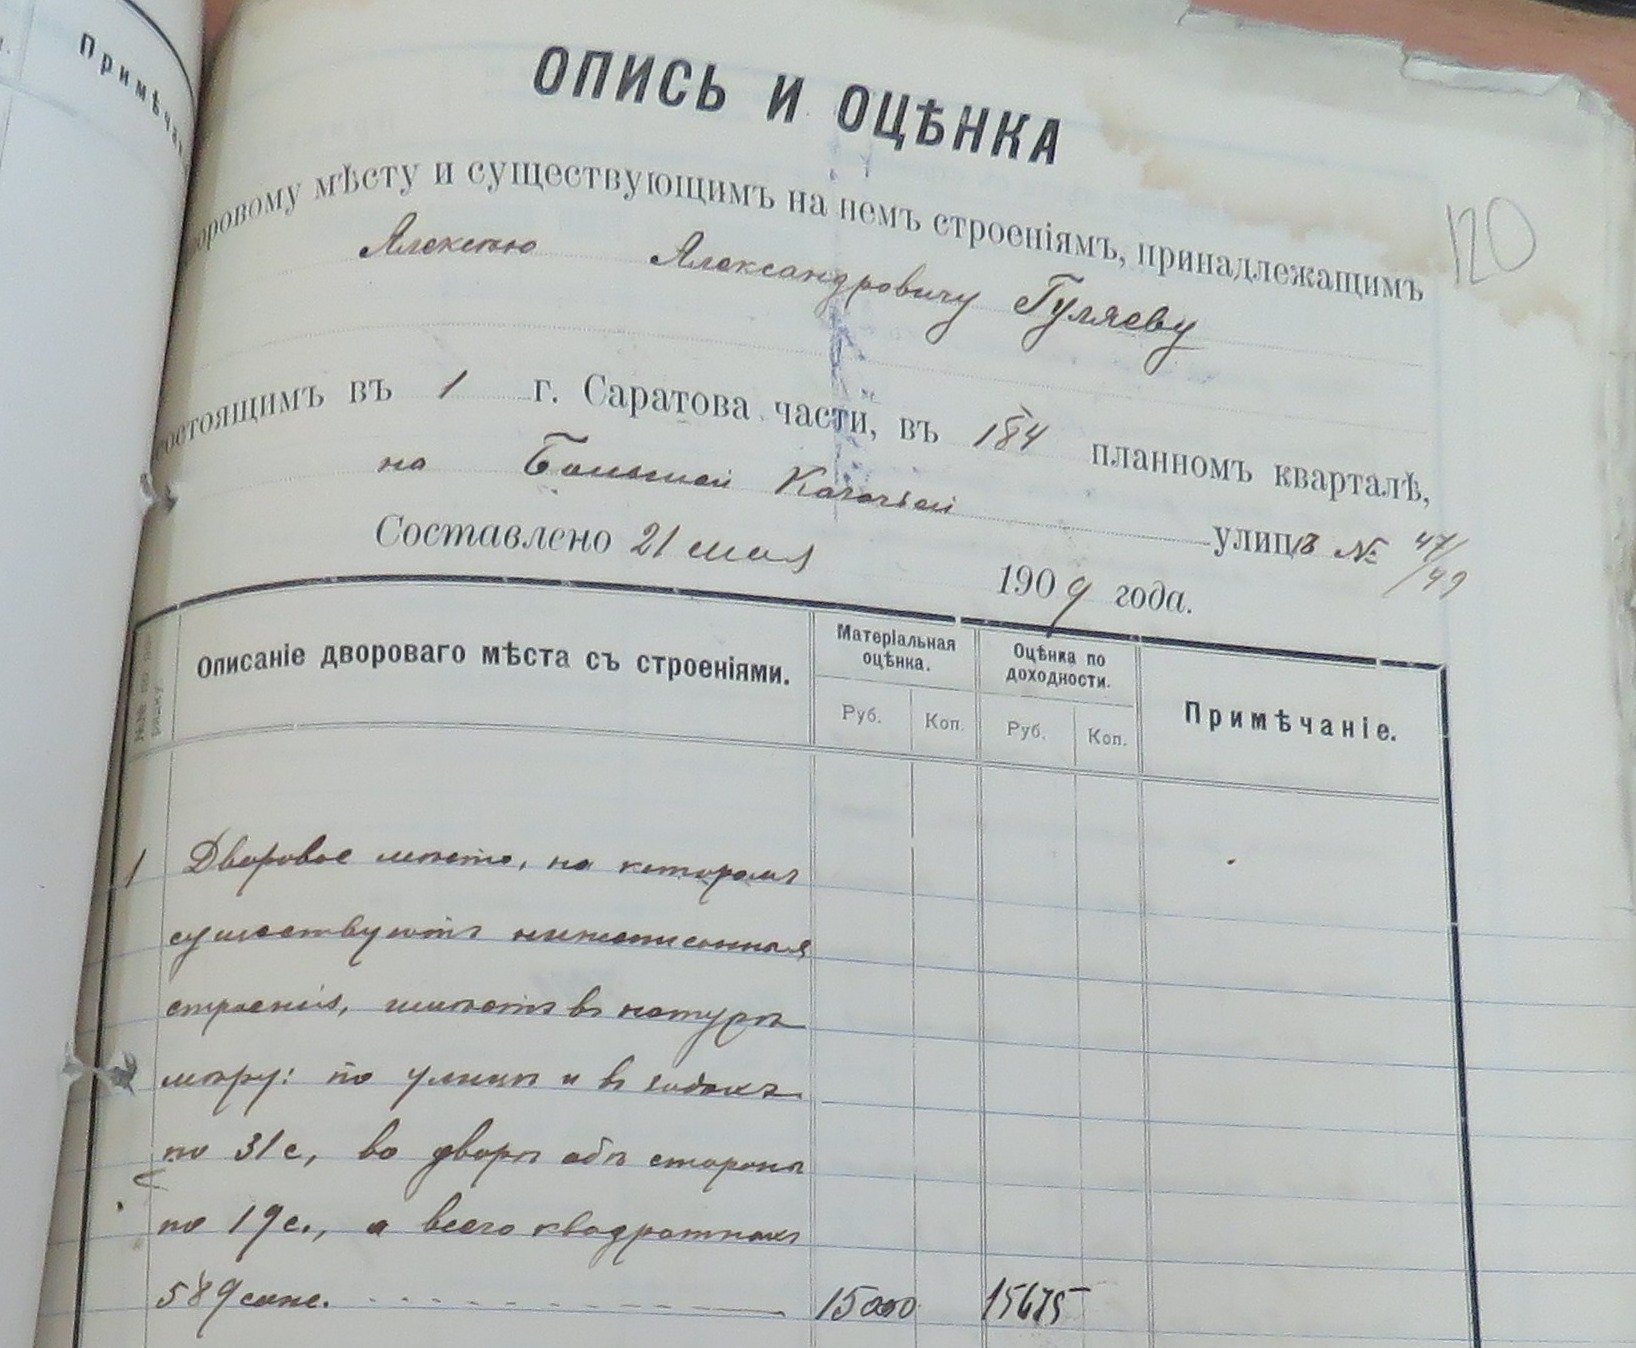 Примѣча
120
ОПИСЬ И ОЦѢНКА
воровому мѣсту и существующимъ на немъ строеніямъ, принадлежащимъ
Алексѣю Александровичу Гуляеву
состоящимъ въ 1 г. Саратова части, въ 184 планномъ кварталѣ,
на Большой Казачьей улицѣ № 47/49
Составлено 21 мая 1909 года.
№№ по по-
рядку
Описаніе двороваго мѣста съ строеніями.
Матеріальная
оцѣнка.
Оцѣнка по
доходности.
Примѣчаніе.
Руб. Коп. Руб. Коп.
1 Дворовое мѣсто, на которомъ
существуютъ нижеписанныя
строенія, имѣетъ въ натурѣ
мѣру: по улицѣ и въ задахъ
по 31 с, во дворѣ обѣ стороны
по 19 с., а всего квадратныхъ
589 саж. 15000 15675